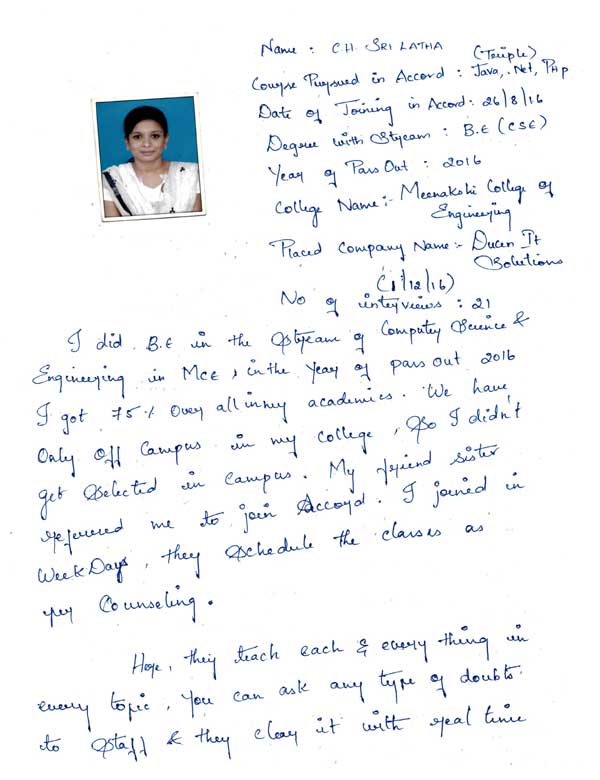 Name : CH. SRI LATHA
(Triple)
Course Pursued in Accord : Java, .Net, PHP
Date of Joining in Accord : 26/8/16
Degree with Stream : B.E (CSE)
Year of Pass Out : 2016
College Name :- Meenakshi College of
Engineering
Placed Company Name :- Ducen It
Solutions
(1/12/16)
No of interviews : 21
I did B.E in the Stream of Computer Science &
Engineering in MCE, in the Year of pass out 2016
I got 75% Over all in my academics. We have
Only off Campus in my college, So I didn't
get Selected in campus. My friend sister
referred me to join Accord. I joined in
WeekDays, they Schedule the classes as
per Counseling.
Here, they teach each & every thing in
every topic, You can ask any type of doubts
to Staff & they clear it with real time